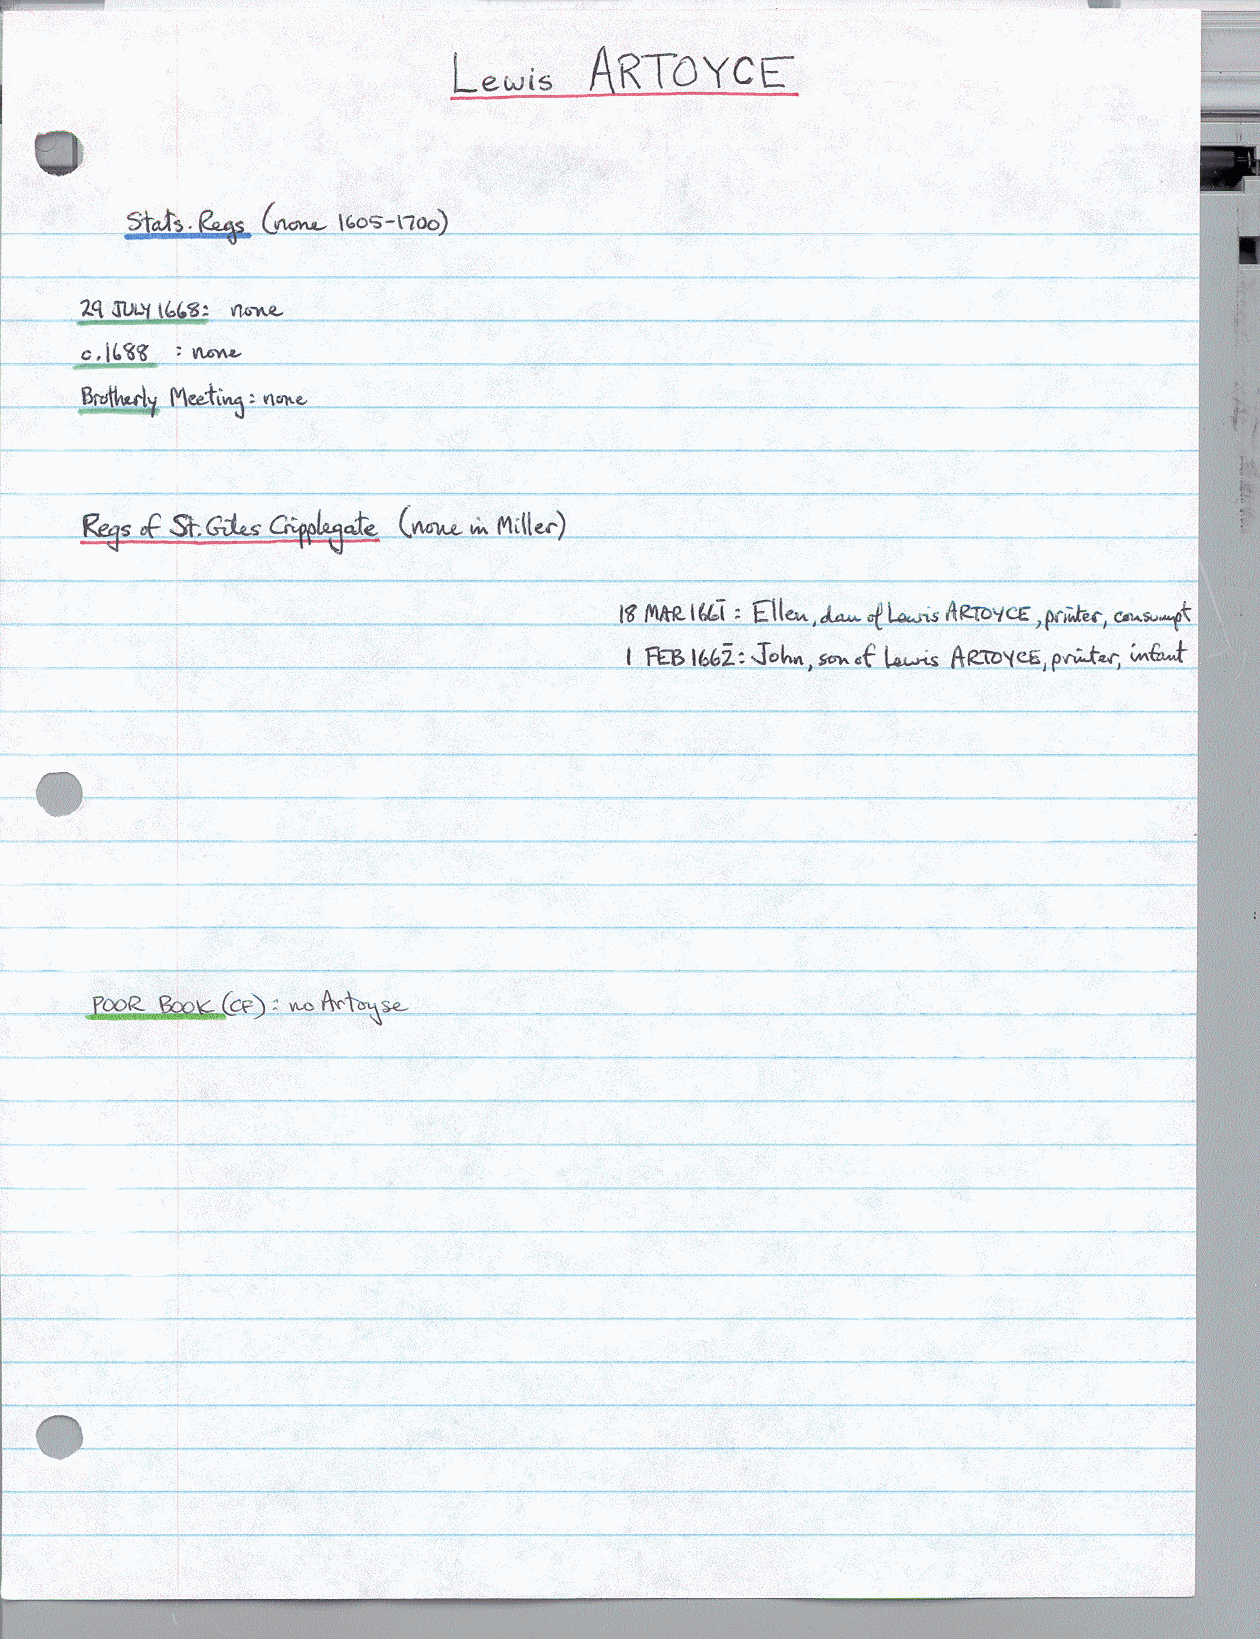 Lewis ARTOYCE
Stats. Regs (none 1605-1700)
29 JULY 1668: none
c.1688 : none
Brotherly Meeting: none
Regs of St. Giles Cripplegate (none in Miller)
18 MAR 1661̅: Ellen, dau of Lewis ARTOYCE, printer, consumpt
1 FEB 1662̅: John, son of Lewis ARTOYCE, printer, infant
POOR BOOK (CF): no Artoyse